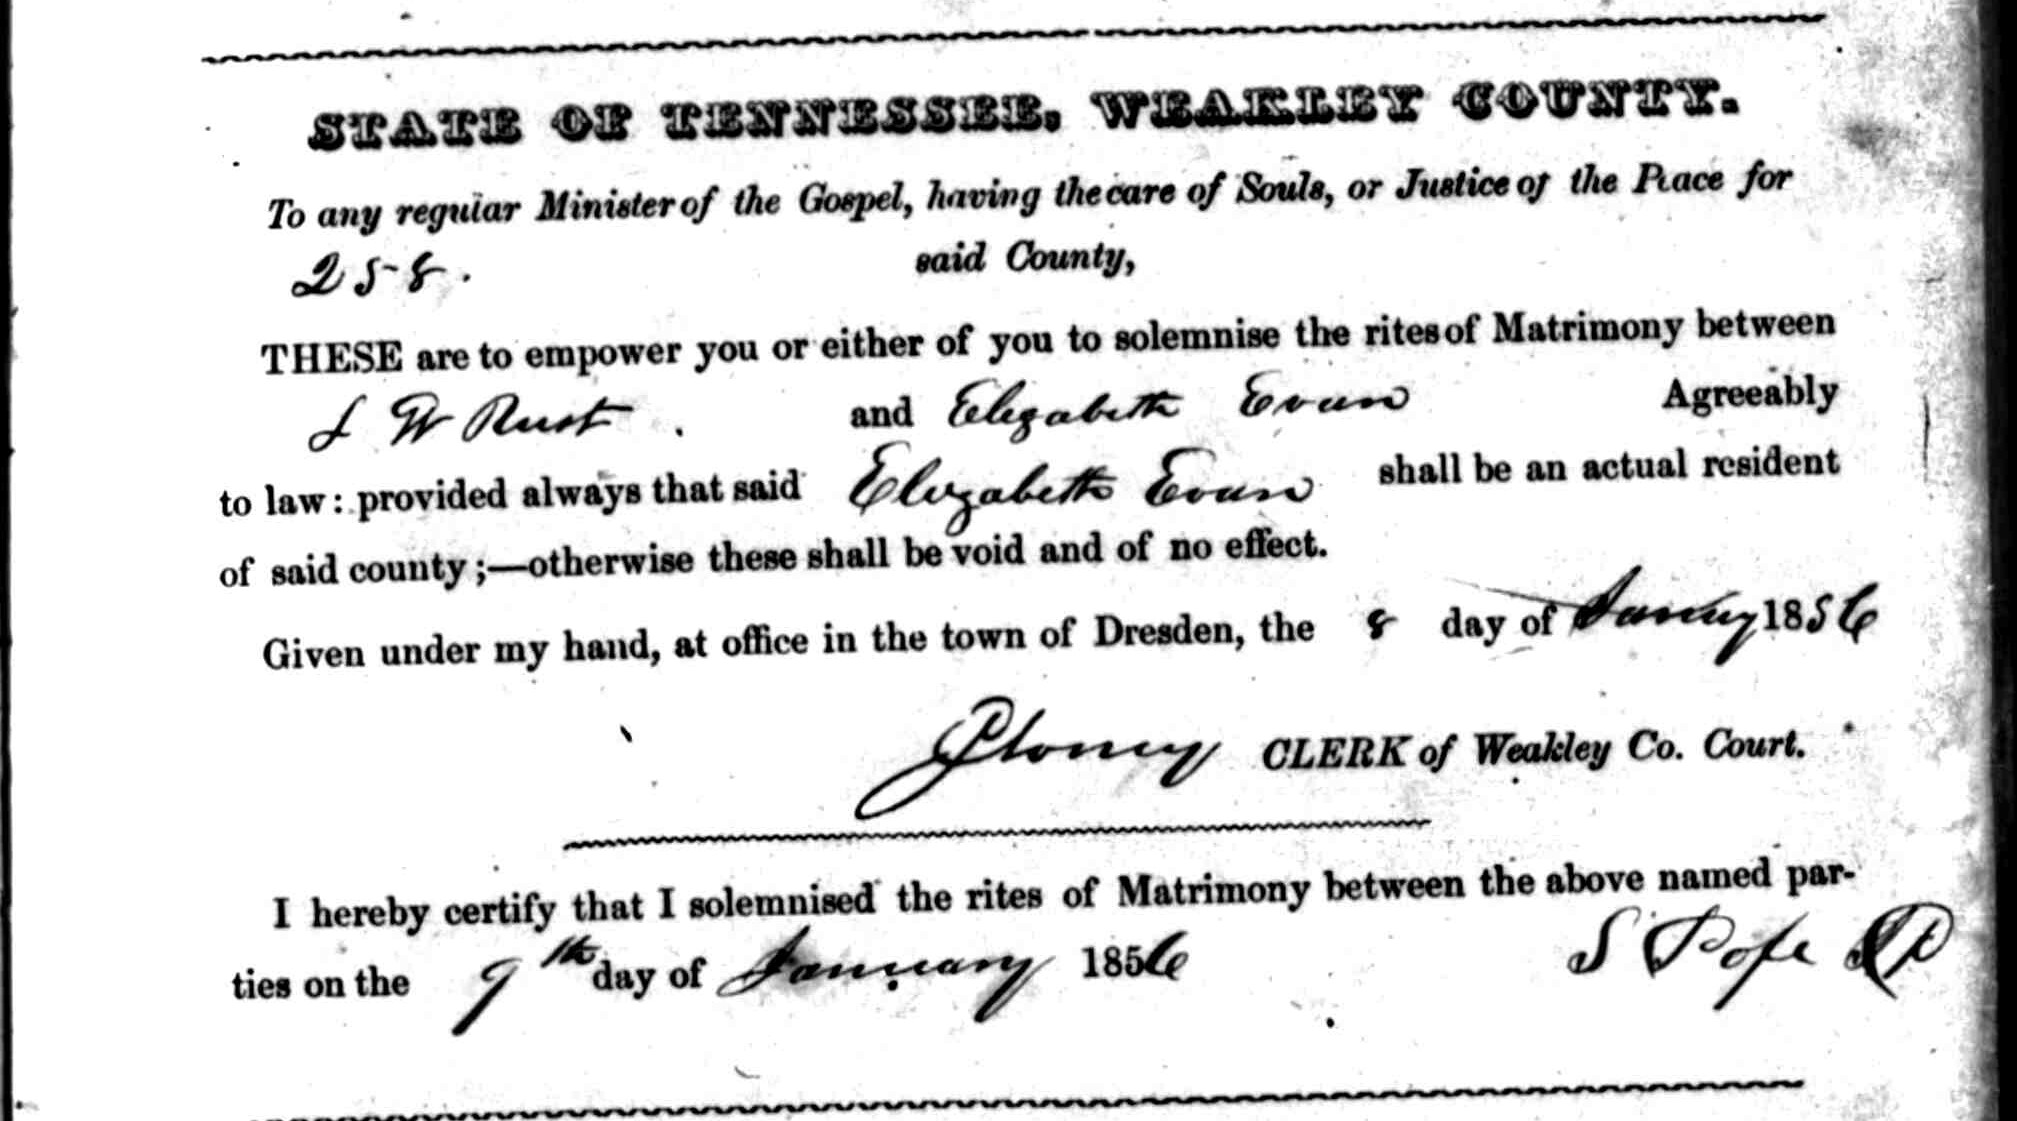 STATE OF TENNESSEE, WEAKLEY COUNTY.
To any regular Minister of the Gospel, having the care of Souls, or Justice of the Peace for
258. said County,
THESE are to empower you or either of you to solemnise the rites of Matrimony between
W Rust. and Elizabeth Evans Agreeably
to law: provided always that said Elizabeth Evans shall be an actual resident
of said county;—otherwise these shall be void and of no effect.
Given under my hand, at office in the town of Dresden, the 8 day of January 1856
CLERK of Weakley Co. Court.
I hereby certify that I solemnised the rites of Matrimony between the above named par-
ties on the 9th day of January 1856 S Pope JP